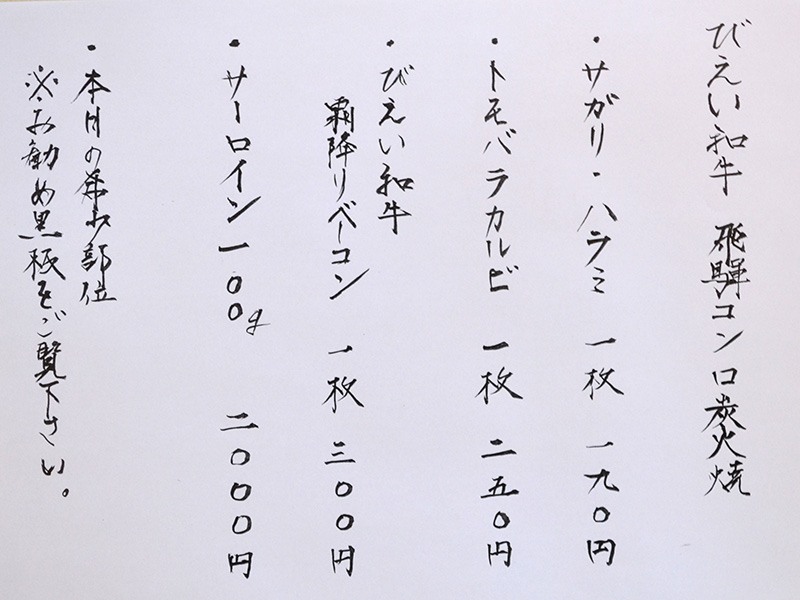 びえい和牛 飛騨コンロ炭火焼
・サガリ・ハラミ 一枚 一九〇円
・トモバラカルビ 一枚 二五〇円
・びえい和牛
霜降りベーコン 一枚 三〇〇円
・サーロイン一〇〇g 二〇〇〇円
・本日の希少部位
※お勧め黒板をご覧下さい。